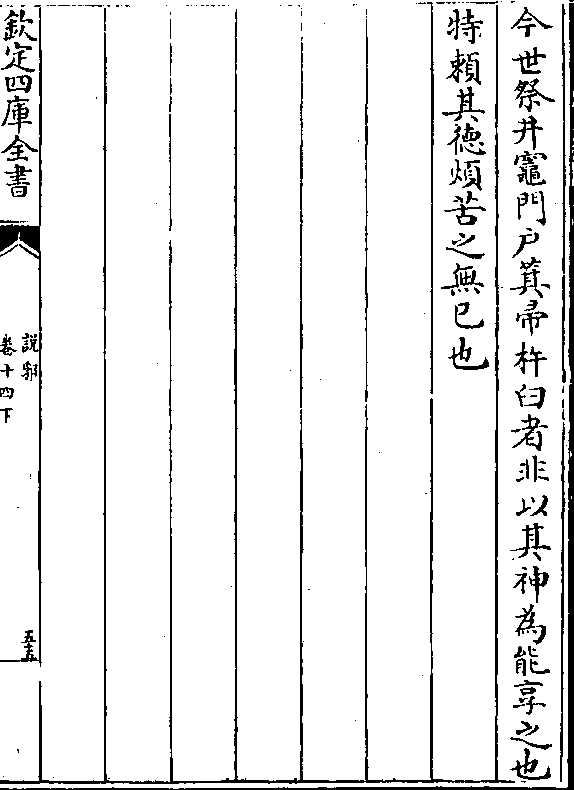 今世祭井竈門户箕帚杵臼者非以其神為能享之也
恃頼其德煩苦之無已也
欽定四庫全書
説郛
卷十四下
五十五